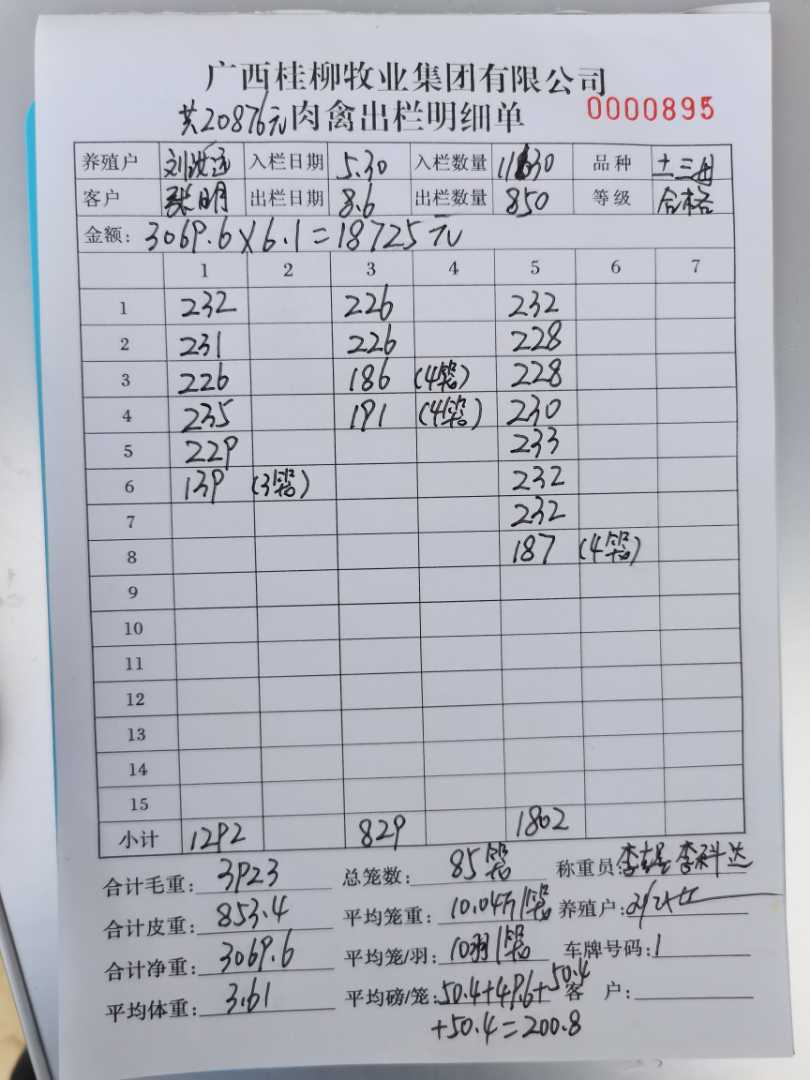 广西桂柳牧业集团有限公司
共20876元 肉禽出栏明细单 0000895
养殖户 入栏日期 5.30 入栏数量 品种
客户 张明 出栏日期 8.6 出栏数量 850 等级 合格
金额: 3069.6×6.1=18725元
1 2 3 4 5 6 7
1 232 226 232
2 231 226 228
3 226 186 (4笼) 228
4 235 191 (4笼) 230
5 229 233
6 139 (3笼) 232
7 232
8 187 (4笼)
9
10
11
12
13
14
15
小计 1292 829 1802
合计毛重: 3923 总笼数: 85笼 称重员: 李 李科达
合计皮重: 853.4 平均笼重: 10.04斤/笼 养殖户:
合计净重: 3069.6 平均笼/羽: 10羽/笼 车牌号码: 1
平均体重: 3.61 平均磅/笼: 50.4+49.6+50.4 客户:
+50.4=200.8